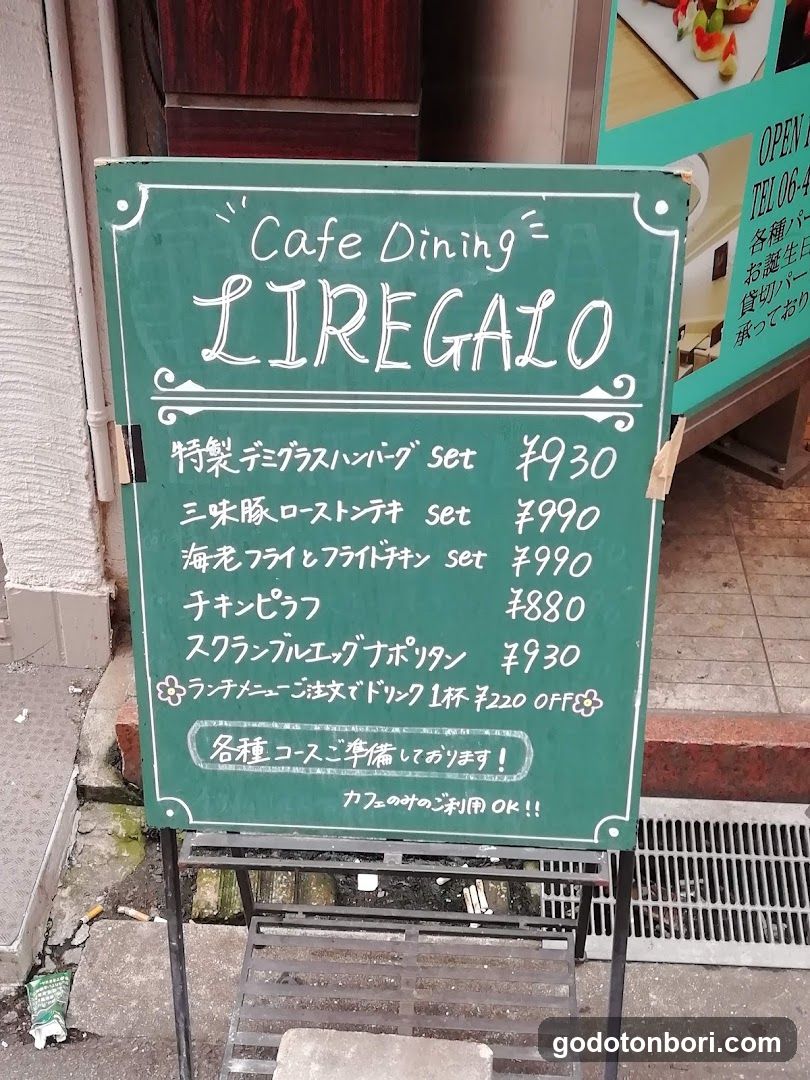 Cafe Dining
LIREGALO
特製デミグラスハンバーグ set ¥930
三味豚ローストンテキ set ¥990
海老フライとフライドチキン set ¥990
チキンピラフ ¥880
スクランブルエッグナポリタン ¥930
ランチメニューご注文でドリンク1杯 ¥220 OFF
各種コースご準備しております!
カフェのみのご利用OK!!
OPEN
TEL 06-4
各種パー
お誕生日
貸切パー
承っており
godotonbori.com